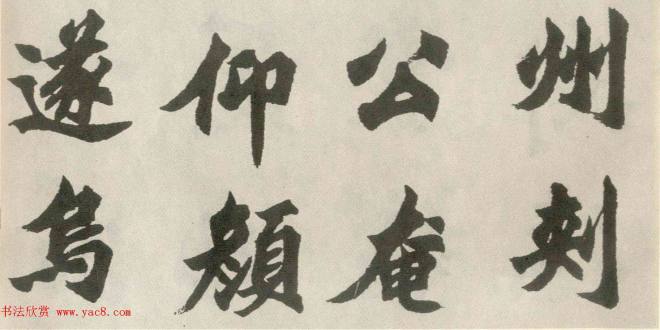 州刺
公奄
仰顔
遂烏
书法欣赏 www.yac8.com